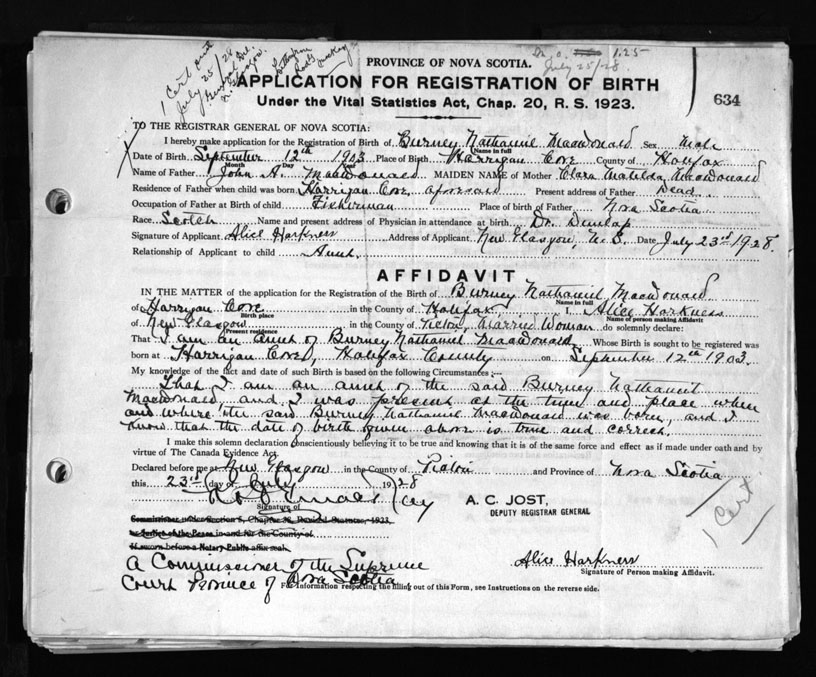 1 Cert sent
July 25/28
General Del.
N. Glasgow.
July 25/28
1.25
PROVINCE OF NOVA SCOTIA.
APPLICATION FOR REGISTRATION OF BIRTH
Under the Vital Statistics Act, Chap. 20, R. S. 1923.
634
TO THE REGISTRAR GENERAL OF NOVA SCOTIA:
I hereby make application for the Registration of Birth of Burney Nathaniel Macdonald Sex Male
Name in full
Date of Birth September 12th 1903 Place of Birth Harrigan Cove County of Halifax
Month Day Year
Name of Father John A. Macdonald MAIDEN NAME of Mother Clara Matilda Macdonald
Residence of Father when child was born Harrigan Cove, aforesaid Present address of Father Dead
Occupation of Father at Birth of child Fisherman Place of birth of Father Nova Scotia
Race Scotch Name and present address of Physician in attendance at birth Dr. Dunlap
Signature of Applicant Alice Harkness Address of Applicant New Glasgow, N. S. Date July 23rd 1928.
Relationship of Applicant to child Aunt.
AFFIDAVIT
IN THE MATTER of the application for the Registration of the Birth of Burney Nathaniel Macdonald
Name in full
of Harrigan Cove in the County of Halifax. I, Alice Harkness
Birth place Name of person making Affidavit
of New Glasgow in the County of Pictou, Married Woman do solemnly declare:
Present residence
That I am an aunt of Burney Nathaniel Macdonald, Whose Birth is sought to be registered was
born at Harrigan Cove, Halifax County on September 12th 1903.
My knowledge of the fact and date of such Birth is based on the following Circumstances:
That I am an aunt of the said Burney Nathaniel
Macdonald, and I was present at the time and place when
and where the said Burney Nathaniel Macdonald was born, and I
know that the date of birth given above is true and correct.
I make this solemn declaration conscientiously believing it to be true and knowing that it is of the same force and effect as if made under oath and by
virtue of The Canada Evidence Act.
Declared before me at New Glasgow in the County of Pictou and Province of Nova Scotia
this 23rd day of July 1928
Signature of
A. C. JOST,
DEPUTY REGISTRAR GENERAL
1 Cert
or Justice of the Peace in and for the County of
If sworn before a Notary Public affix seal.
A Commissioner of the Supreme
Court Province of Nova Scotia
Alice Harkness
Signature of Person making Affidavit.
For Information respecting the filling out of this Form, see Instructions on the reverse side.